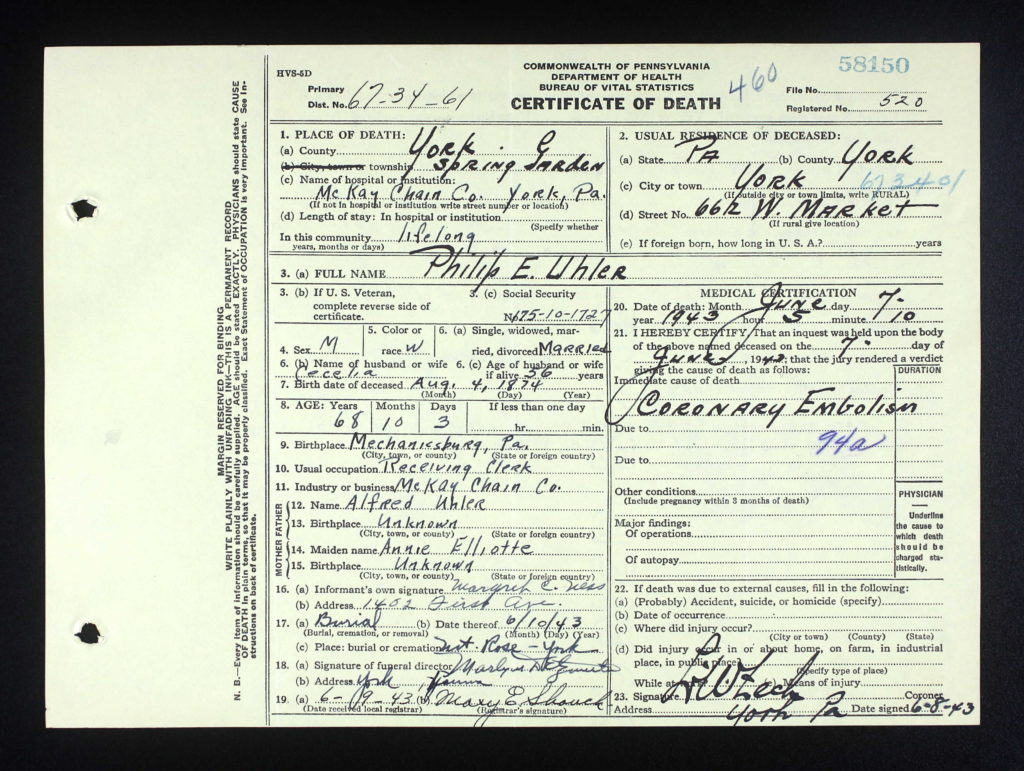 HVS-5D
COMMONWEALTH OF PENNSYLVANIA
DEPARTMENT OF HEALTH
BUREAU OF VITAL STATISTICS
CERTIFICATE OF DEATH
460
58150
Primary
Dist. No. 67-34-61
File No.
Registered No. 520
MARGIN RESERVED FOR BINDING
WRITE PLAINLY WITH UNFADING INK—THIS IS A PERMANENT RECORD
N. B.—Every item of information should be carefully supplied. AGE should be stated EXACTLY. PHYSICIANS should state CAUSE
OF DEATH in plain terms, so that it may be properly classified. Exact Statement of OCCUPATION is very important. See In-
structions on back of certificate.
1. PLACE OF DEATH:
(a) County York
(b) City, town or township Spring Garden
(c) Name of hospital or institution:
McKay Chain Co. York, Pa.
(If not in hospital or institution write street number or location)
(d) Length of stay: In hospital or institution
(Specify whether
In this community lifelong
years, months or days)
2. USUAL RESIDENCE OF DECEASED:
(a) State Pa (b) County York
(c) City or town York 673401
(If outside city or town limits, write RURAL)
(d) Street No. 66½ W. Market
(If rural give location)
(e) If foreign born, how long in U. S. A.? years
3. (a) FULL NAME Philip E. Uhler
3. (b) If U. S. Veteran,
complete reverse side of
certificate.
3. (c) Social Security
No. 175-10-1727
4. Sex M
5. Color or
race W
6. (a) Single, widowed, mar-
ried, divorced Married
6. (b) Name of husband or wife
Cecelia
6. (c) Age of husband or wife
if alive 56 years
7. Birth date of deceased Aug. 4, 1874
(Month) (Day) (Year)
8. AGE: Years Months Days If less than one day
68 10 3 hr. min.
9. Birthplace Mechanicsburg, Pa.
(City, town, or county) (State or foreign country)
10. Usual occupation Receiving Clerk
11. Industry or business McKay Chain Co.
FATHER
12. Name Alfred Uhler
13. Birthplace Unknown
(City, town, or county) (State or foreign country)
MOTHER
14. Maiden name Annie Elliotte
15. Birthplace Unknown
(City, town, or county) (State or foreign country)
16. (a) Informant's own signature Margret C. Ness
(b) Address 1402 First Ave.
17. (a) Burial (b) Date thereof 6/10/43
(Burial, cremation, or removal) (Month) (Day) (Year)
(c) Place: burial or cremation Mt Rose - York
18. (a) Signature of funeral director
(b) Address York Penna
19. (a) 6-19-43 (b) Mary E. Shouck
(Date received local registrar) (Registrar's signature)
MEDICAL CERTIFICATION
20. Date of death: Month June day 7-
year 1943 hour 5 minute 10
21. I HEREBY CERTIFY, That an inquest was held upon the body
of the above named deceased on the 7- day of
June, 1943; that the jury rendered a verdict
giving the cause of death as follows:
DURATION
Immediate cause of death
Coronary Embolism
Due to
94a
Due to
Other conditions
(Include pregnancy within 3 months of death)
Major findings:
Of operations
Of autopsy
PHYSICIAN
Underline
the cause to
which death
should be
charged sta-
tistically.
22. If death was due to external causes, fill in the following:
(a) (Probably) Accident, suicide, or homicide (specify)
(b) Date of occurrence
(c) Where did injury occur?
(City or town) (County) (State)
(d) Did injury occur in or about home, on farm, in industrial
place, in public place?
(Specify type of place)
While at (e) Means of injury
23. Signature Coroner
Address York Pa Date signed 6-8-43